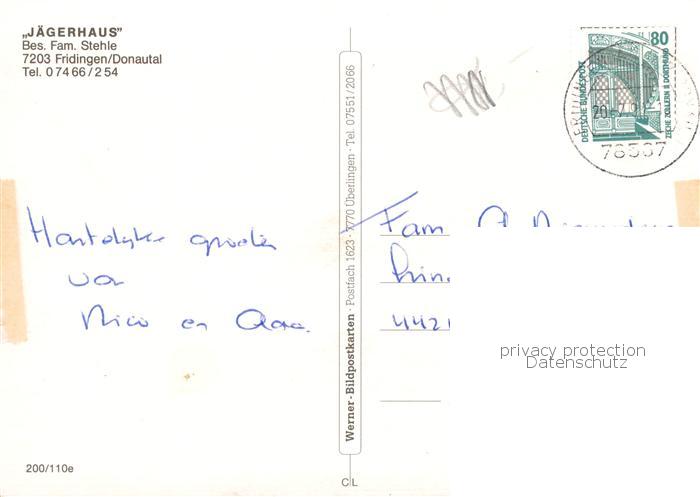 „JÄGERHAUS”
Bes. Fam. Stehle
7203 Fridingen/Donautal
Tel. 0 74 66 / 2 54
Hartelijke groeten
van
Nico en
200/110e
Werner-Bildpostkarten · Postfach 1623 · 7770 Überlingen · Tel. 07551/2066
C L
80
DEUTSCHE BUNDESPOST
ZECHE ZOLLERN II DORTMUND
78567
Fam
Prin
4421
privacy protection
Datenschutz